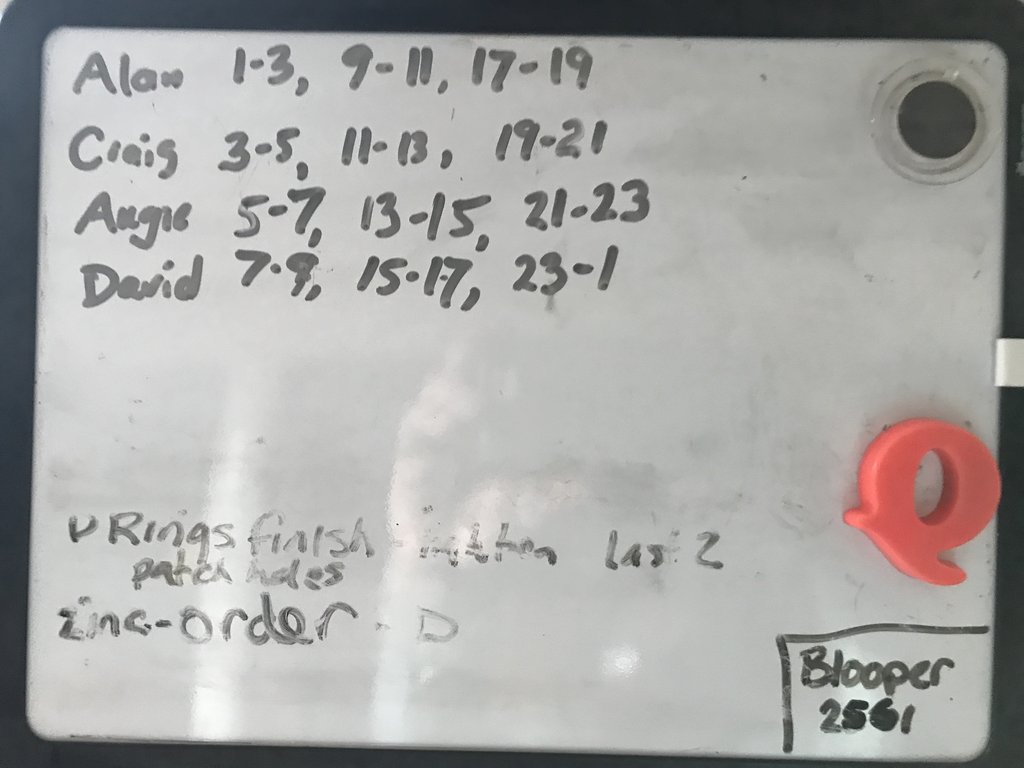 Alan 1-3, 9-11, 17-19
Craig 3-5, 11-13, 19-21
Angie 5-7, 13-15, 21-23
David 7-9, 15-17, 23-1
Rings finish - last 2
patch holes
zinc-order - D
Q
Blooper
2561